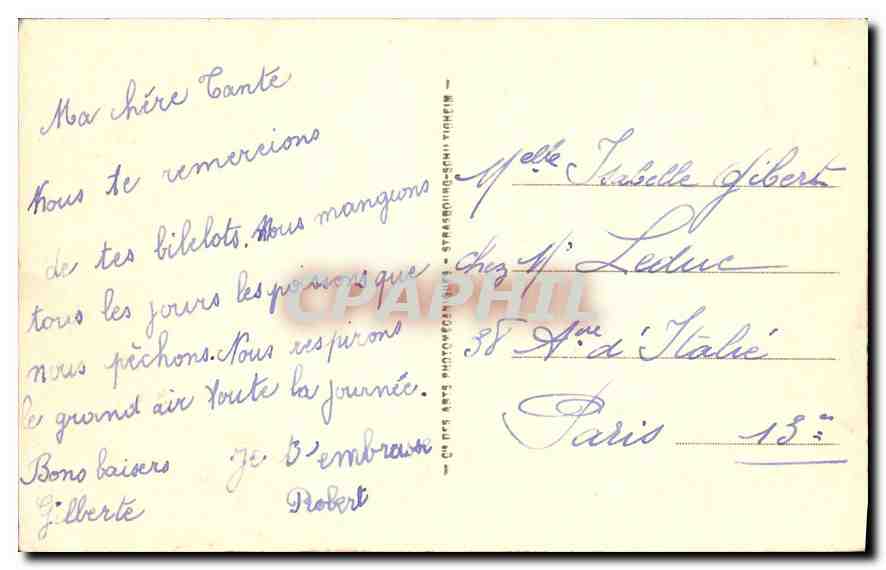 Ma chère Tante
Nous te remercions
de tes bibelots. Nous mangeons
tous les jours les poissons que
nous pêchons. Nous respirons
le grand air toute la journée.
Bons baisers
Gilberte
Je t'embrasse
Robert
Cie DES ARTS PHOTOMÉCANIQUES - STRASBOURG-SCHILTIGHEIM -
Melle Isabelle Gibert
chez Mr Leduc
38 Ave d'Italie
Paris 13e
CPAPHIL